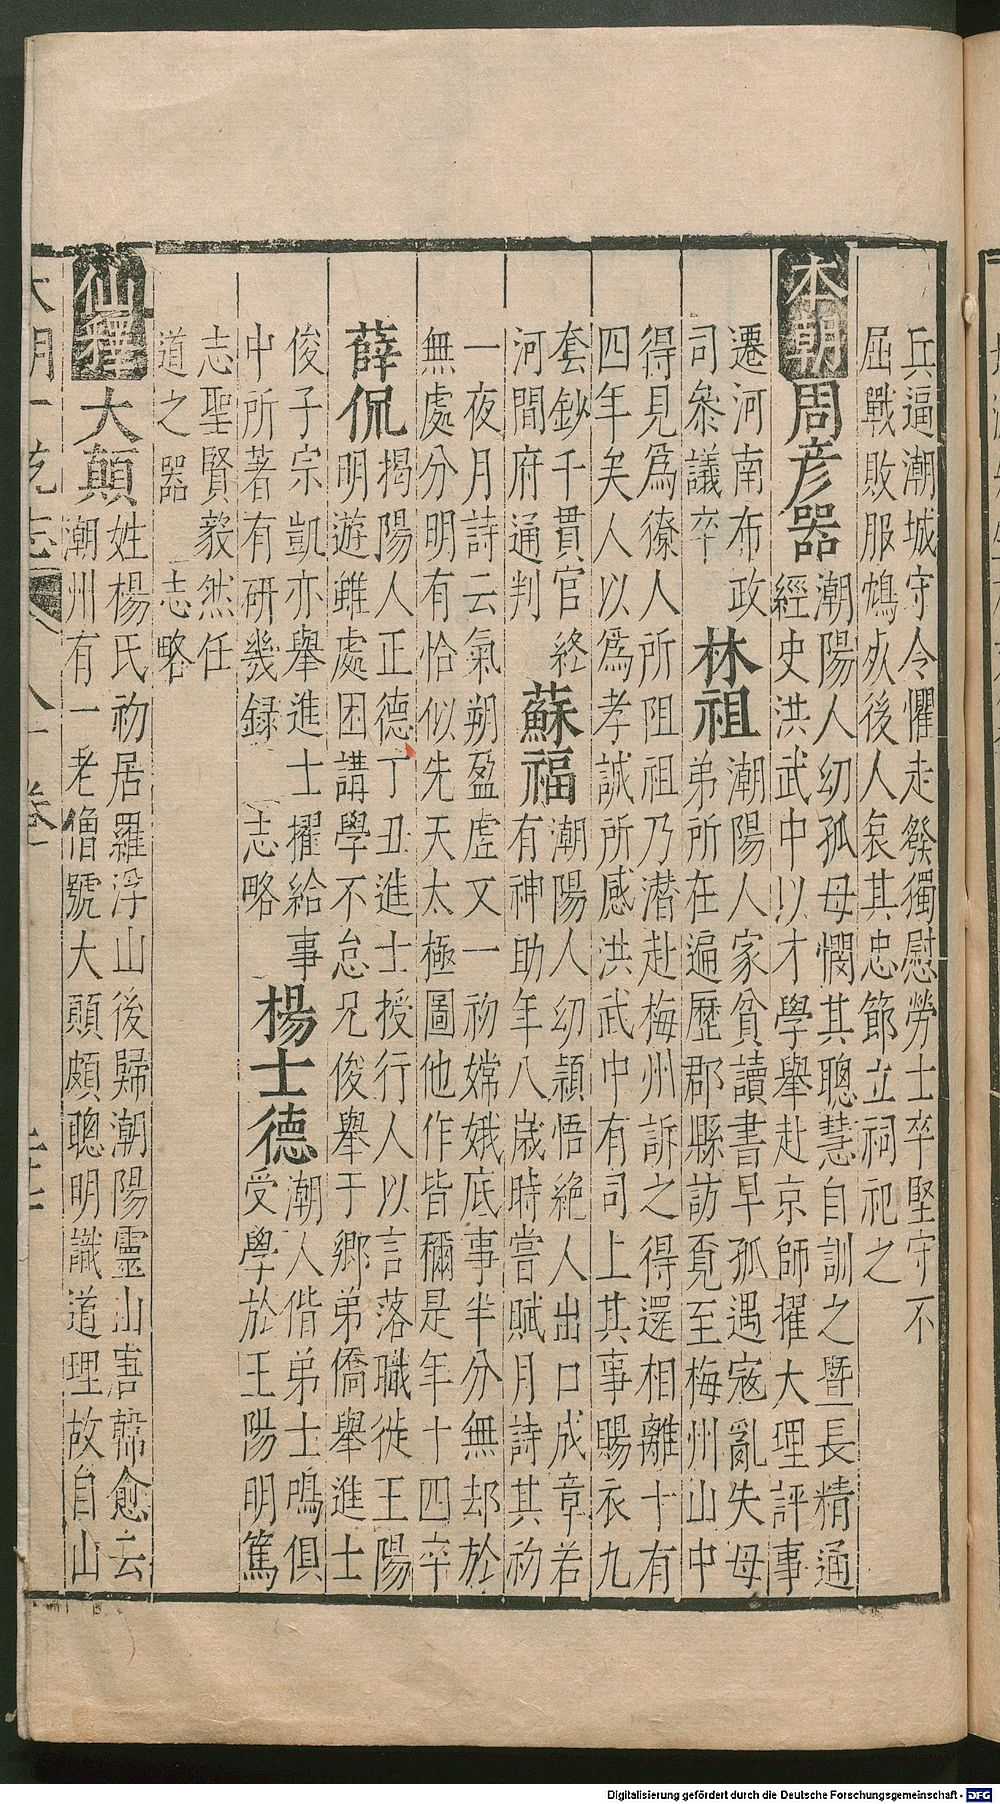 兵逼潮城守令懼走發獨慰勞士卒堅守不
屈戰敗服鴆死後人哀其忠節立祠祀之
本朝
周彥器
潮陽人幼孤母憫其聰慧自訓之暨長精通
經史洪武中以才學舉赴京師擢大理評事
遷河南布政
司叅議卒
林祖
潮陽人家貧讀書早孤遇寇亂失母
弟所在遍歷郡縣訪覔至梅州山中
得見爲獠人所阻祖乃潛赴梅州訴之得還相離十有
四年矣人以爲孝誠所感洪武中有司上其事賜衣九
套鈔千貫官終
河間府通判
蘇福
潮陽人幼穎悟絶人出口成章若
有神助年八歲時嘗賦月詩其初
一夜月詩云氣朔盈虛又一初嫦娥底事半分無却於
無處分明有恰似先天太極圖他作皆稱是年十四卒
薛侃
揭陽人正德丁丑進士授行人以言落職徙王陽
明遊雖處困講學不怠兄俊舉于鄉弟僑舉進士
俊子宗凱亦舉進士擢給事
中所著有研幾録 志略
楊士德
潮人偕弟士鳴俱
受學於王陽明篤
志聖賢毅然任
道之器 志略
仙釋
大顛
姓楊氏初居羅浮山後歸潮陽靈山唐韓愈云
潮州有一老僧號大顛頗聰明識道理故自山
大明一統志 八十卷